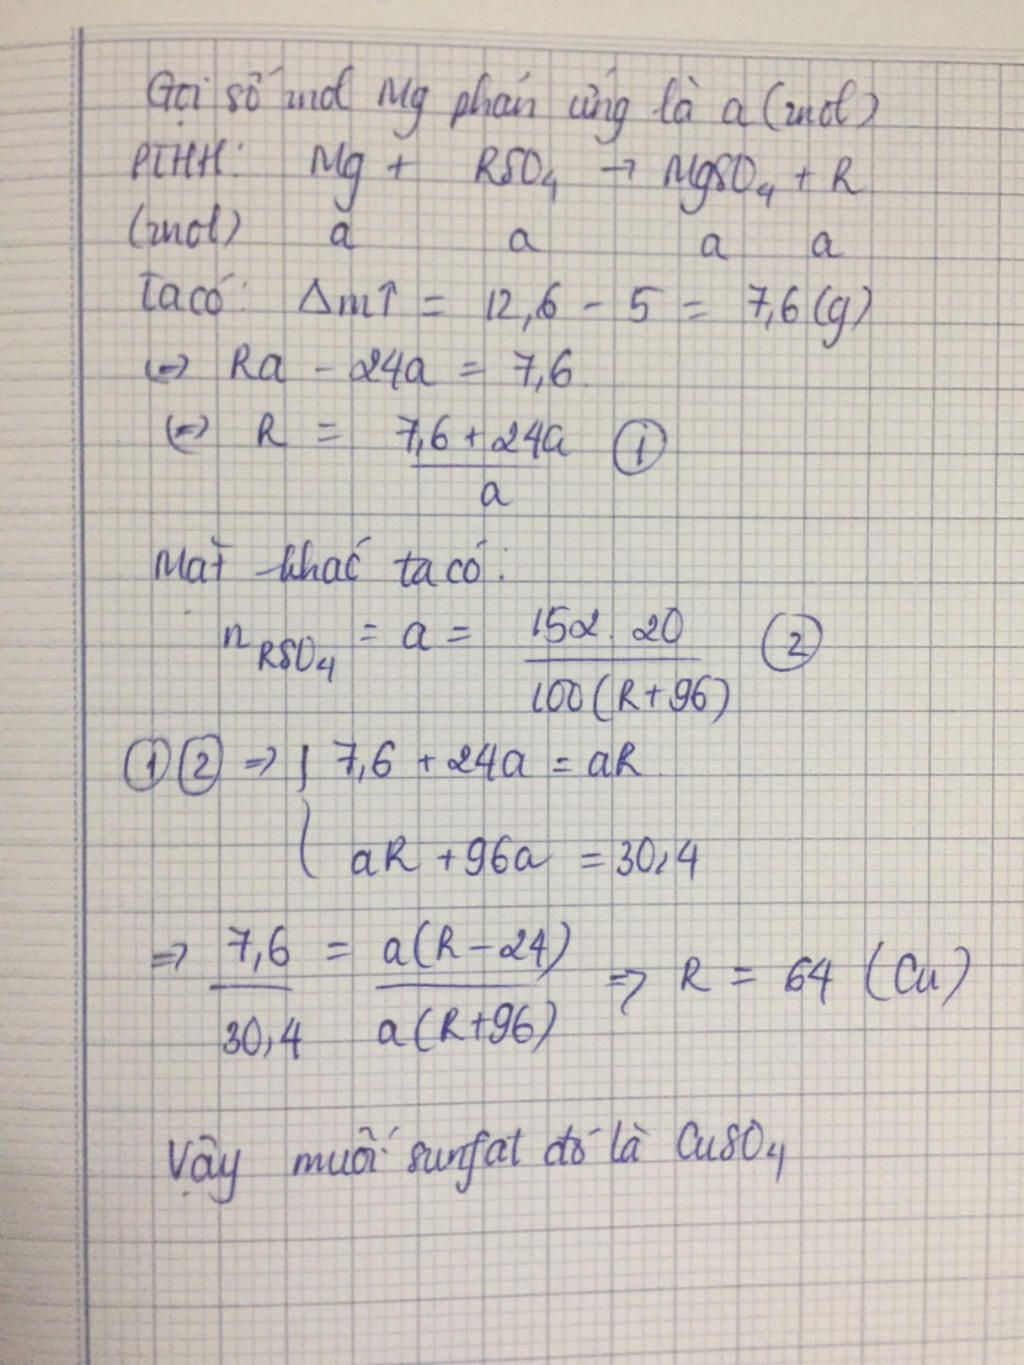 Gọi số mol Mg phản ứng là a (mol)
PTHH: Mg + RSO₄ → MgSO₄ + R
(mol) a a a a
Ta có: Δm↑ = 12,6 - 5 = 7,6 (g)
(=) Ra - 24a = 7,6
(=) R = (7,6 + 24a)/a ①
Mặt khác ta có:
n RSO₄ = a = (152 . 20)/(100(R+96)) ②
①② => { 7,6 + 24a = aR
aR + 96a = 30,4
=> 7,6/30,4 = a(R-24)/a(R+96) => R = 64 (Cu)
Vậy muối sunfat đó là CuSO₄